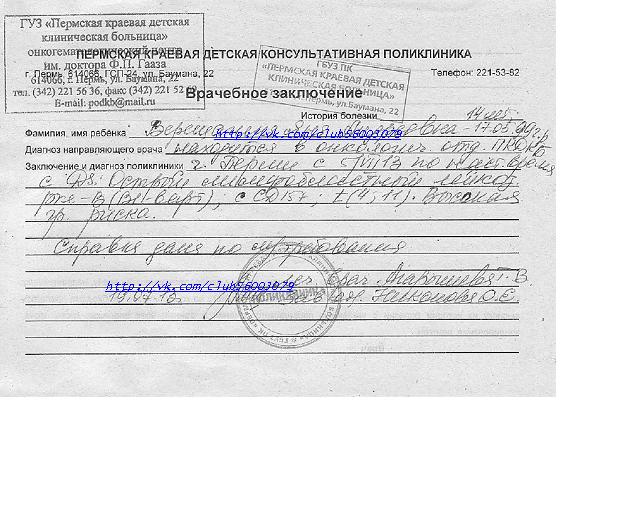 ГУЗ «Пермская краевая детская
клиническая больница»
онкогематологический центр
им. доктора Ф.П. Гааза
614066, г. Пермь, ул. Баумана, 22
тел. (342) 221 56 36, факс (342) 221 52
E-mail: podkb@mail.ru
ПЕРМСКАЯ КРАЕВАЯ ДЕТСКАЯ КОНСУЛЬТАТИВНАЯ ПОЛИКЛИНИКА
г. Пермь, 614066, ГСП-24, ул. Баумана, 22
Телефон: 221-53-82
ГБУЗ ПК
«ПЕРМСКАЯ КРАЕВАЯ ДЕТСКАЯ
КЛИНИЧЕСКАЯ БОЛЬНИЦА»
г. Пермь, ул.Баумана, 22
Врачебное заключение
История болезни
Фамилия, имя ребёнка
http://vk.com/club56003079
Диагноз направляющего врача находится в онкологич. отд. ПКДКБ
Заключение и диагноз поликлиники г. Перми с 5/VIII 13 по наст. время
с DS: Острый лимфобластный лейкоз,
pre-B (BII-вар.), с CD15+, t(4;11). Высокая
гр. риска.
Справка дана по м/требования
http://vk.com/club56003079
врач